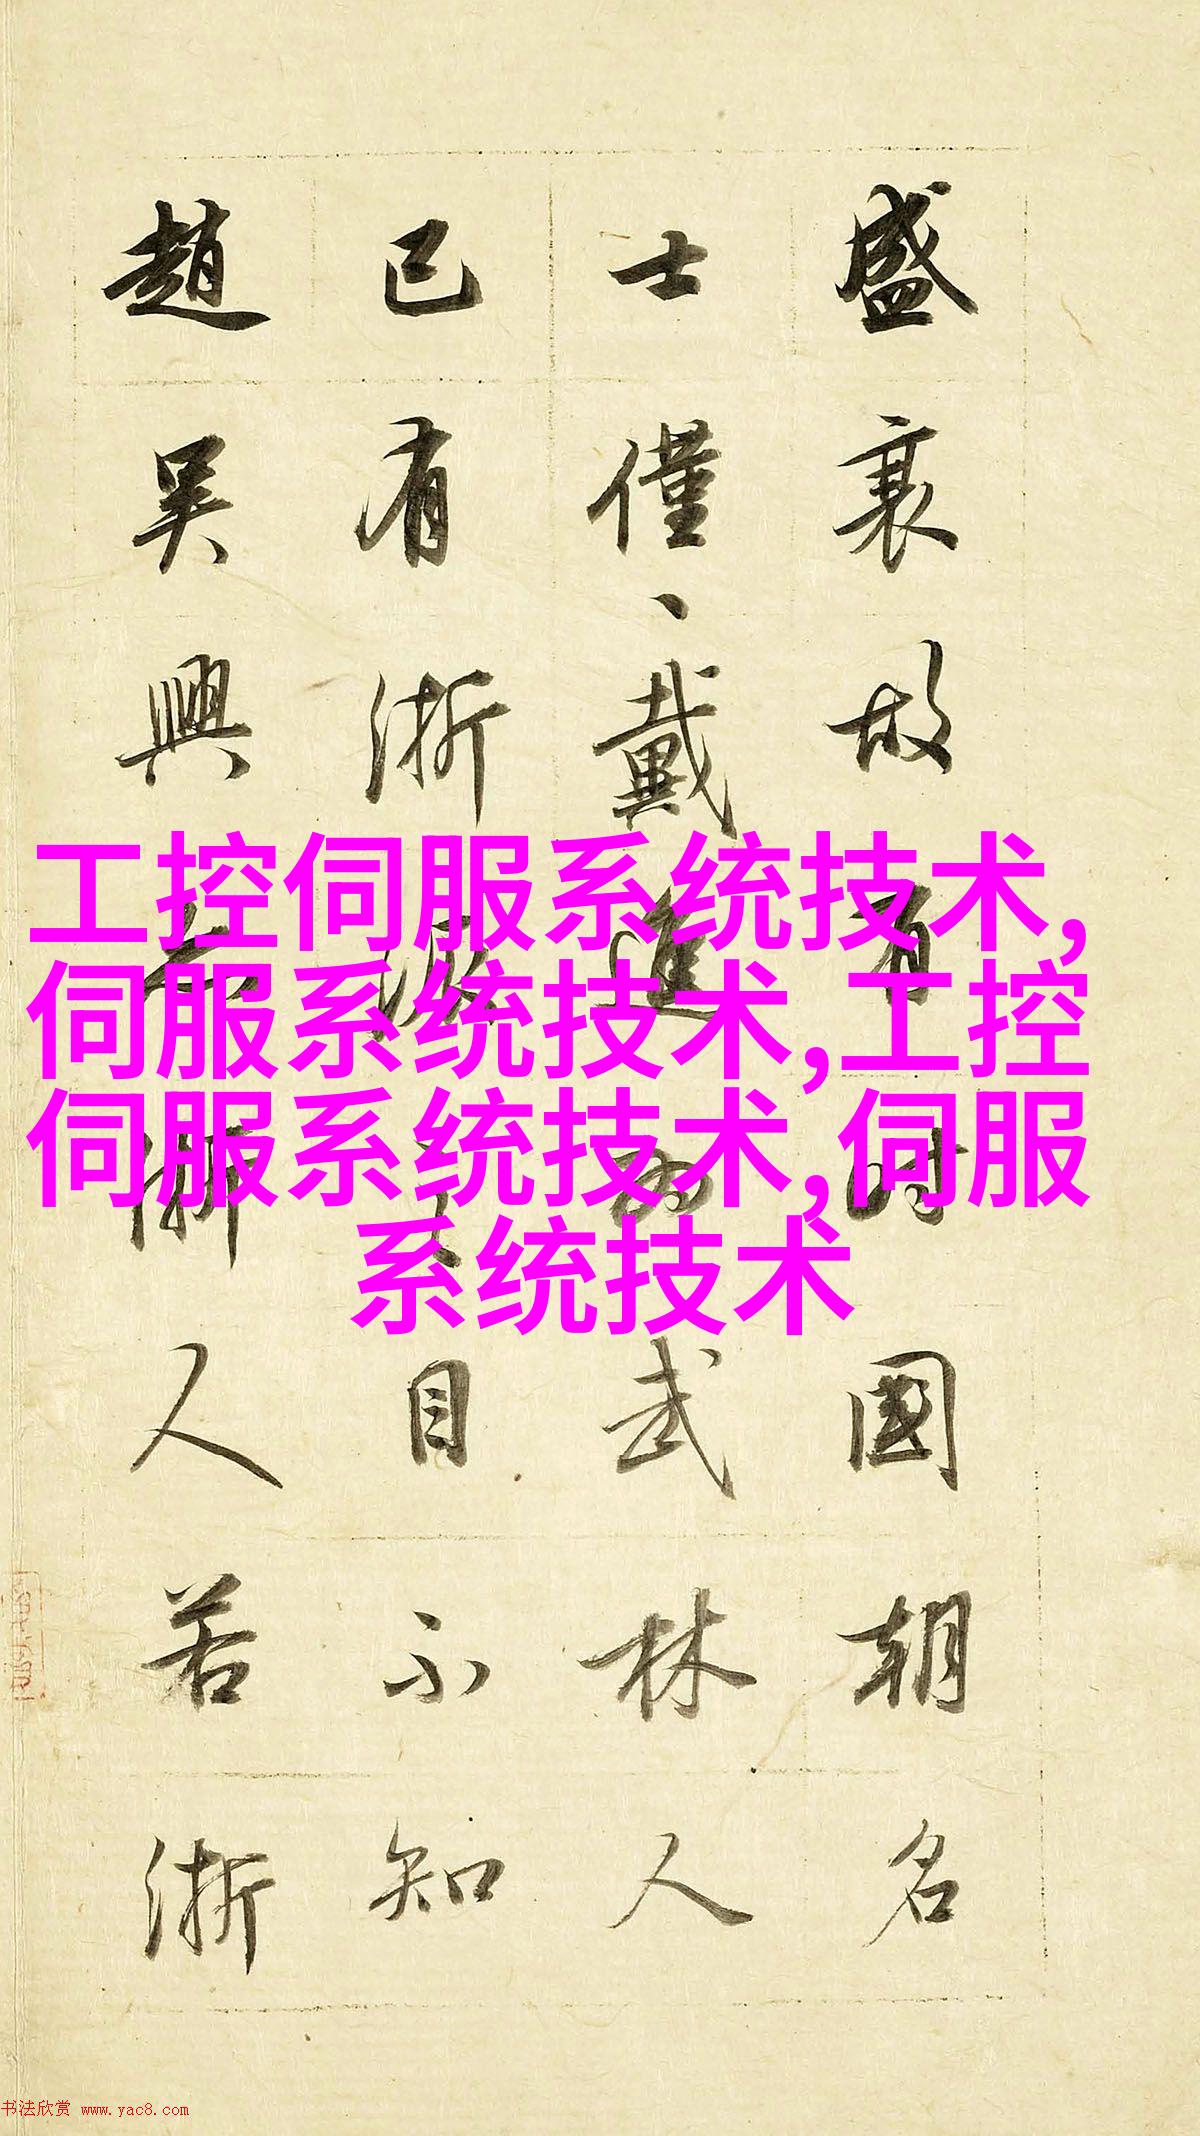 盛衰故有時國朝名
士僅、戴進武林人
已有浙派之目不知
趙吳興亦浙人若浙
工控伺服系统技术,
伺服系统技术,工控
伺服系统技术,伺服
系统技术
书法欣赏 www.yac8.com